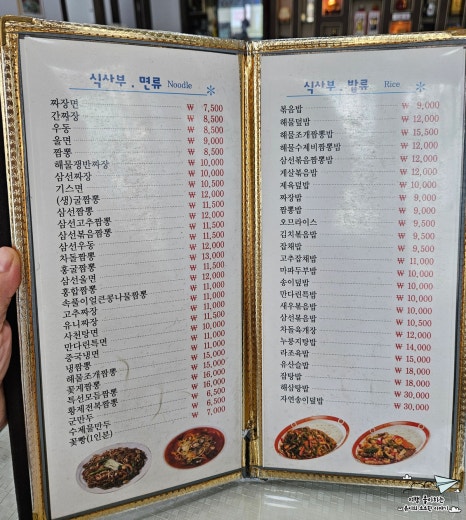 식사부 . 면류 Noodle
짜장면 ₩ 7,500
간짜장 ₩ 8,500
우동 ₩ 8,500
울면 ₩ 9,000
짬뽕 ₩ 8,500
해물쟁반짜장 ₩ 10,000
삼선짜장 ₩ 10,000
기스면 ₩ 10,500
(생)굴짬뽕 ₩ 12,000
삼선짬뽕 ₩ 11,500
삼선고추짬뽕 ₩ 12,000
삼선볶음짬뽕 ₩ 11,500
삼선우동 ₩ 11,500
차돌짬뽕 ₩ 12,000
홍굴짬뽕 ₩ 13,000
삼선울면 ₩ 11,500
홍합짬뽕 ₩ 11,000
속풀이얼큰콩나물짬뽕 ₩ 12,000
고추짜장 ₩ 11,500
유니짜장 ₩ 11,000
사천탕면 ₩ 10,000
만다린특면 ₩ 11,000
중국냉면 ₩ 11,000
냉짬뽕 ₩ 11,000
해물조개짬뽕 ₩ 15,000
꽃게짬뽕 ₩ 15,000
특선모듬짬뽕 ₩ 16,000
황제전복짬뽕 ₩ 16,000
군만두 ₩ 6,000
수제물만두 ₩ 7,000
꽃빵(1인분)
식사부 . 밥류 Rice
볶음밥 ₩ 9,000
해물덮밥 ₩ 12,000
해물조개짬뽕밥 ₩ 15,500
해물수제비짬뽕밥 ₩ 12,000
삼선볶음짬뽕밥 ₩ 12,000
게살볶음밥 ₩ 12,000
제육덮밥 ₩ 10,000
짜장밥 ₩ 9,000
짬뽕밥 ₩ 9,000
오므라이스 ₩ 9,500
김치볶음밥 ₩ 9,000
잡채밥 ₩ 9,000
고추잡채밥 ₩ 11,000
마파두부밥 ₩ 10,000
송이덮밥 ₩ 11,000
만다린특밥 ₩ 10,000
새우볶음밥 ₩ 10,000
삼선볶음밥 ₩ 10,500
차돌육개장 ₩ 12,000
누룽지탕밥 ₩ 14,000
라조육밥 ₩ 15,000
유산슬밥 ₩ 18,000
잡탕밥 ₩ 18,000
해삼탕밥 ₩ 30,000
자연송이덮밥 ₩ 30,000